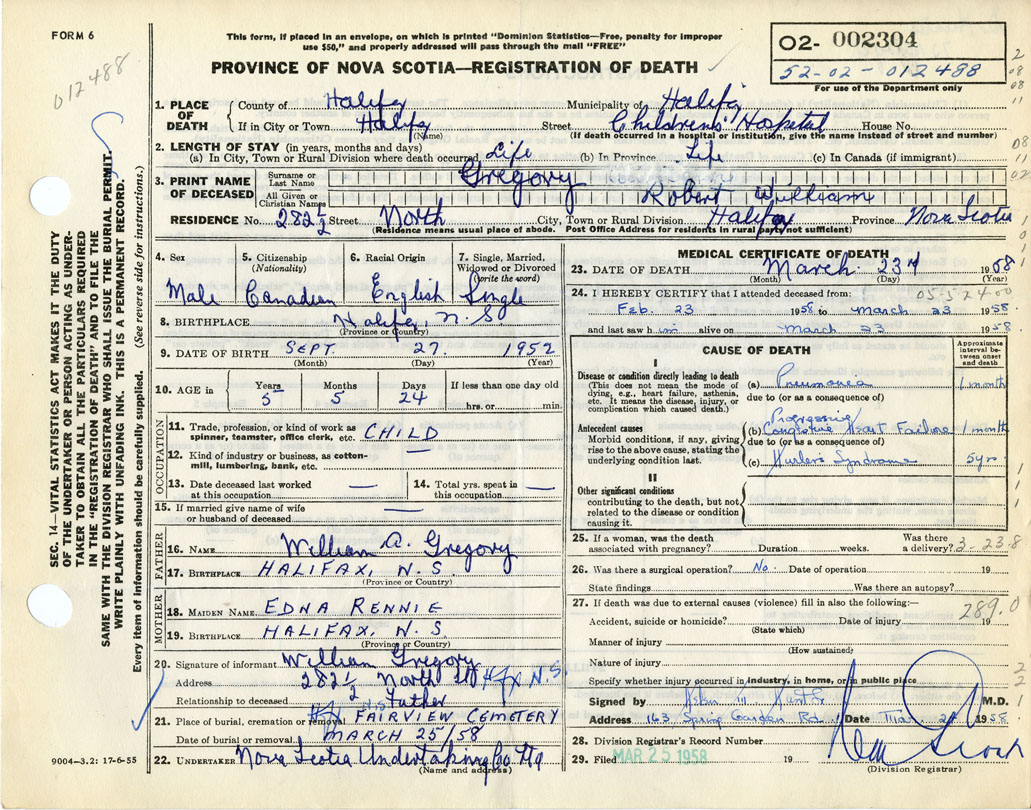 FORM 6
012488
This form, if placed in an envelope, on which is printed "Dominion Statistics—Free, penalty for improper
use $50," and properly addressed will pass through the mail "FREE"
PROVINCE OF NOVA SCOTIA—REGISTRATION OF DEATH
02- 002304
52-02-012488
For use of the Department only
1. PLACE OF DEATH
County of Halifax Municipality of Halifax
If in City or Town Halifax Street Childrens Hospital House No.
(Name) (If death occurred in a hospital or institution, give the name instead of street and number)
2. LENGTH OF STAY (in years, months and days)
(a) In City, Town or Rural Division where death occurred Life (b) In Province Life (c) In Canada (if immigrant)
3. PRINT NAME OF DECEASED
Surname or Last Name Gregory
All Given or Christian Names Robert William
RESIDENCE No. 282 1/2 Street North City, Town or Rural Division Halifax Province Nova Scotia
(Residence means usual place of abode. Post Office Address for residents in rural parts not sufficient)
4. Sex 5. Citizenship (Nationality) 6. Racial Origin 7. Single, Married, Widowed or Divorced (write the word)
Male Canadian English Single
8. BIRTHPLACE Halifax, N.S
(Province or Country)
9. DATE OF BIRTH SEPT. 27. 1952
(Month) (Day) (Year)
10. AGE in Years Months Days If less than one day old
5 5 24 hrs. or min.
OCCUPATION
11. Trade, profession or kind of work as spinner, teamster, office clerk, etc. CHILD
12. Kind of industry or business, as cotton-mill, lumbering, bank, etc. —
13. Date deceased last worked at this occupation — 14. Total yrs. spent in this occupation —
15. If married give name of wife or husband of deceased —
FATHER
16. NAME William A. Gregory
17. BIRTHPLACE HALIFAX, N.S.
(Province or Country)
MOTHER
18. MAIDEN NAME EDNA RENNIE
19. BIRTHPLACE HALIFAX, N.S
(Province or Country)
20. Signature of informant William Gregory
Address 282 1/2 North St Hfx N.S.
Relationship to deceased Father
21. Place of burial, cremation or removal FAIRVIEW CEMETERY
Date of burial or removal MARCH 25/58
22. UNDERTAKER Nova Scotia Undertaking Co.
(Name and address)
9004-3.2: 17-6-55
SEC. 14—VITAL STATISTICS ACT MAKES IT THE DUTY
OF THE UNDERTAKER OR PERSON ACTING AS UNDER-
TAKER TO OBTAIN ALL THE PARTICULARS REQUIRED
IN THE "REGISTRATION OF DEATH" AND TO FILE THE
SAME WITH THE DIVISION REGISTRAR WHO SHALL ISSUE THE BURIAL PERMIT.
WRITE PLAINLY WITH UNFADING INK. THIS IS A PERMANENT RECORD.
Every item of information should be carefully supplied. (See reverse side for instructions.)
MEDICAL CERTIFICATE OF DEATH
23. DATE OF DEATH March 23 1958
(Month) (Day) (Year)
24. I HEREBY CERTIFY that I attended deceased from:
Feb. 23 1958 to March 23 1958
and last saw him alive on March 23 1958
CAUSE OF DEATH
Approximate interval between onset and death
I
Disease or condition directly leading to death
(This does not mean the mode of dying, e.g., heart failure, asthenia, etc. It means the disease, injury, or complication which caused death.)
(a) Pneumonia 1 month
due to (or as a consequence of)
Antecedent causes
Morbid conditions, if any, giving rise to the above cause, stating the underlying condition last.
Progressive
(b) Congestive Heart Failure 1 month
due to (or as a consequence of)
(c) Hurler's Syndrome 5 yrs
II
Other significant conditions
contributing to the death, but not related to the disease or condition causing it.
25. If a woman, was the death associated with pregnancy? Duration weeks. Was there a delivery?
3-23.8
26. Was there a surgical operation? No. Date of operation 19
State findings Was there an autopsy?
27. If death was due to external causes (violence) fill in also the following:—
289.0
Accident, suicide or homicide? Date of injury 19
(State which)
Manner of injury
(How sustained)
Nature of injury
Specify whether injury occurred in industry, in home, or in public place
Signed by M.D.
Address 163 Spring Garden Rd. Date Mar 24 1958
28. Division Registrar's Record Number
29. Filed MAR 25 1958 19
(Division Registrar)